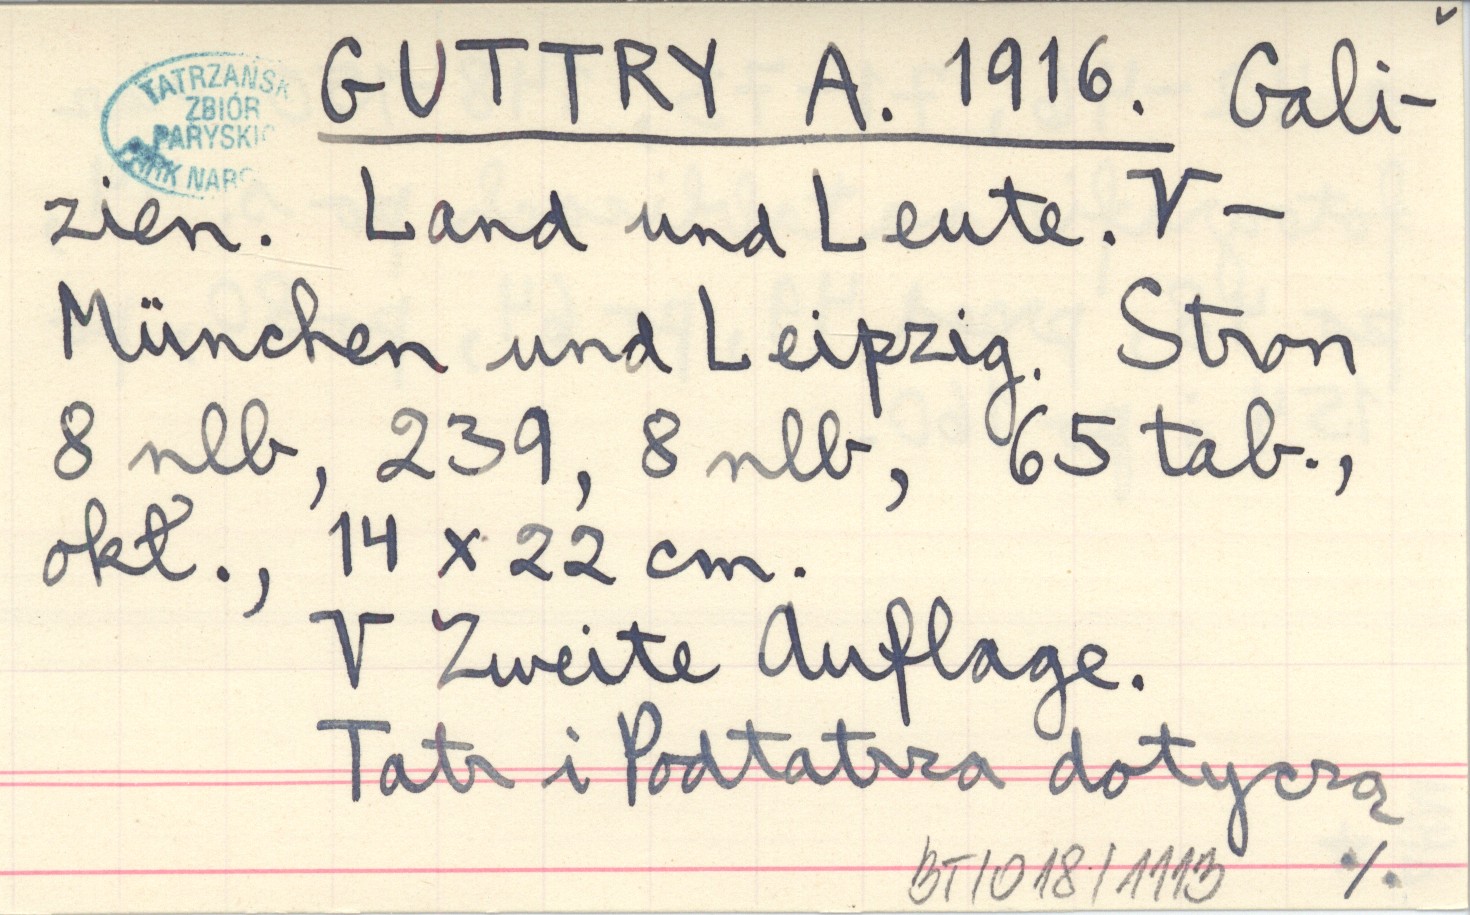 TATRZAŃSK
ZBIÓR
PARYSKIC
PARK NARO
GUTTRY A. 1916. Gali-
zien. Land und Leute. V –
München und Leipzig. Stron
8 nlb, 239, 8 nlb, 65 tab.,
okł., 14 x 22 cm.
V Zweite Auflage.
Tatr i Podtatrza dotyczą
BT/018/1113 ./.